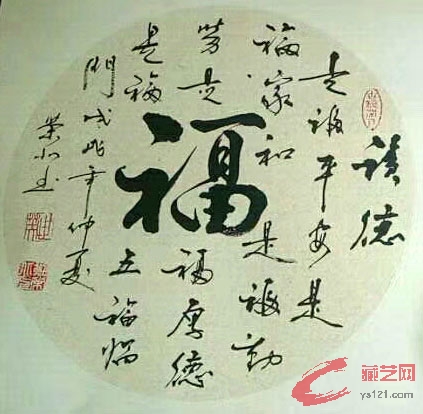 积德
是福平安是
福家和是福勤
劳是福厚德
是福五福临
门戊戌年仲夏
书
福
藏艺网
ys121.com